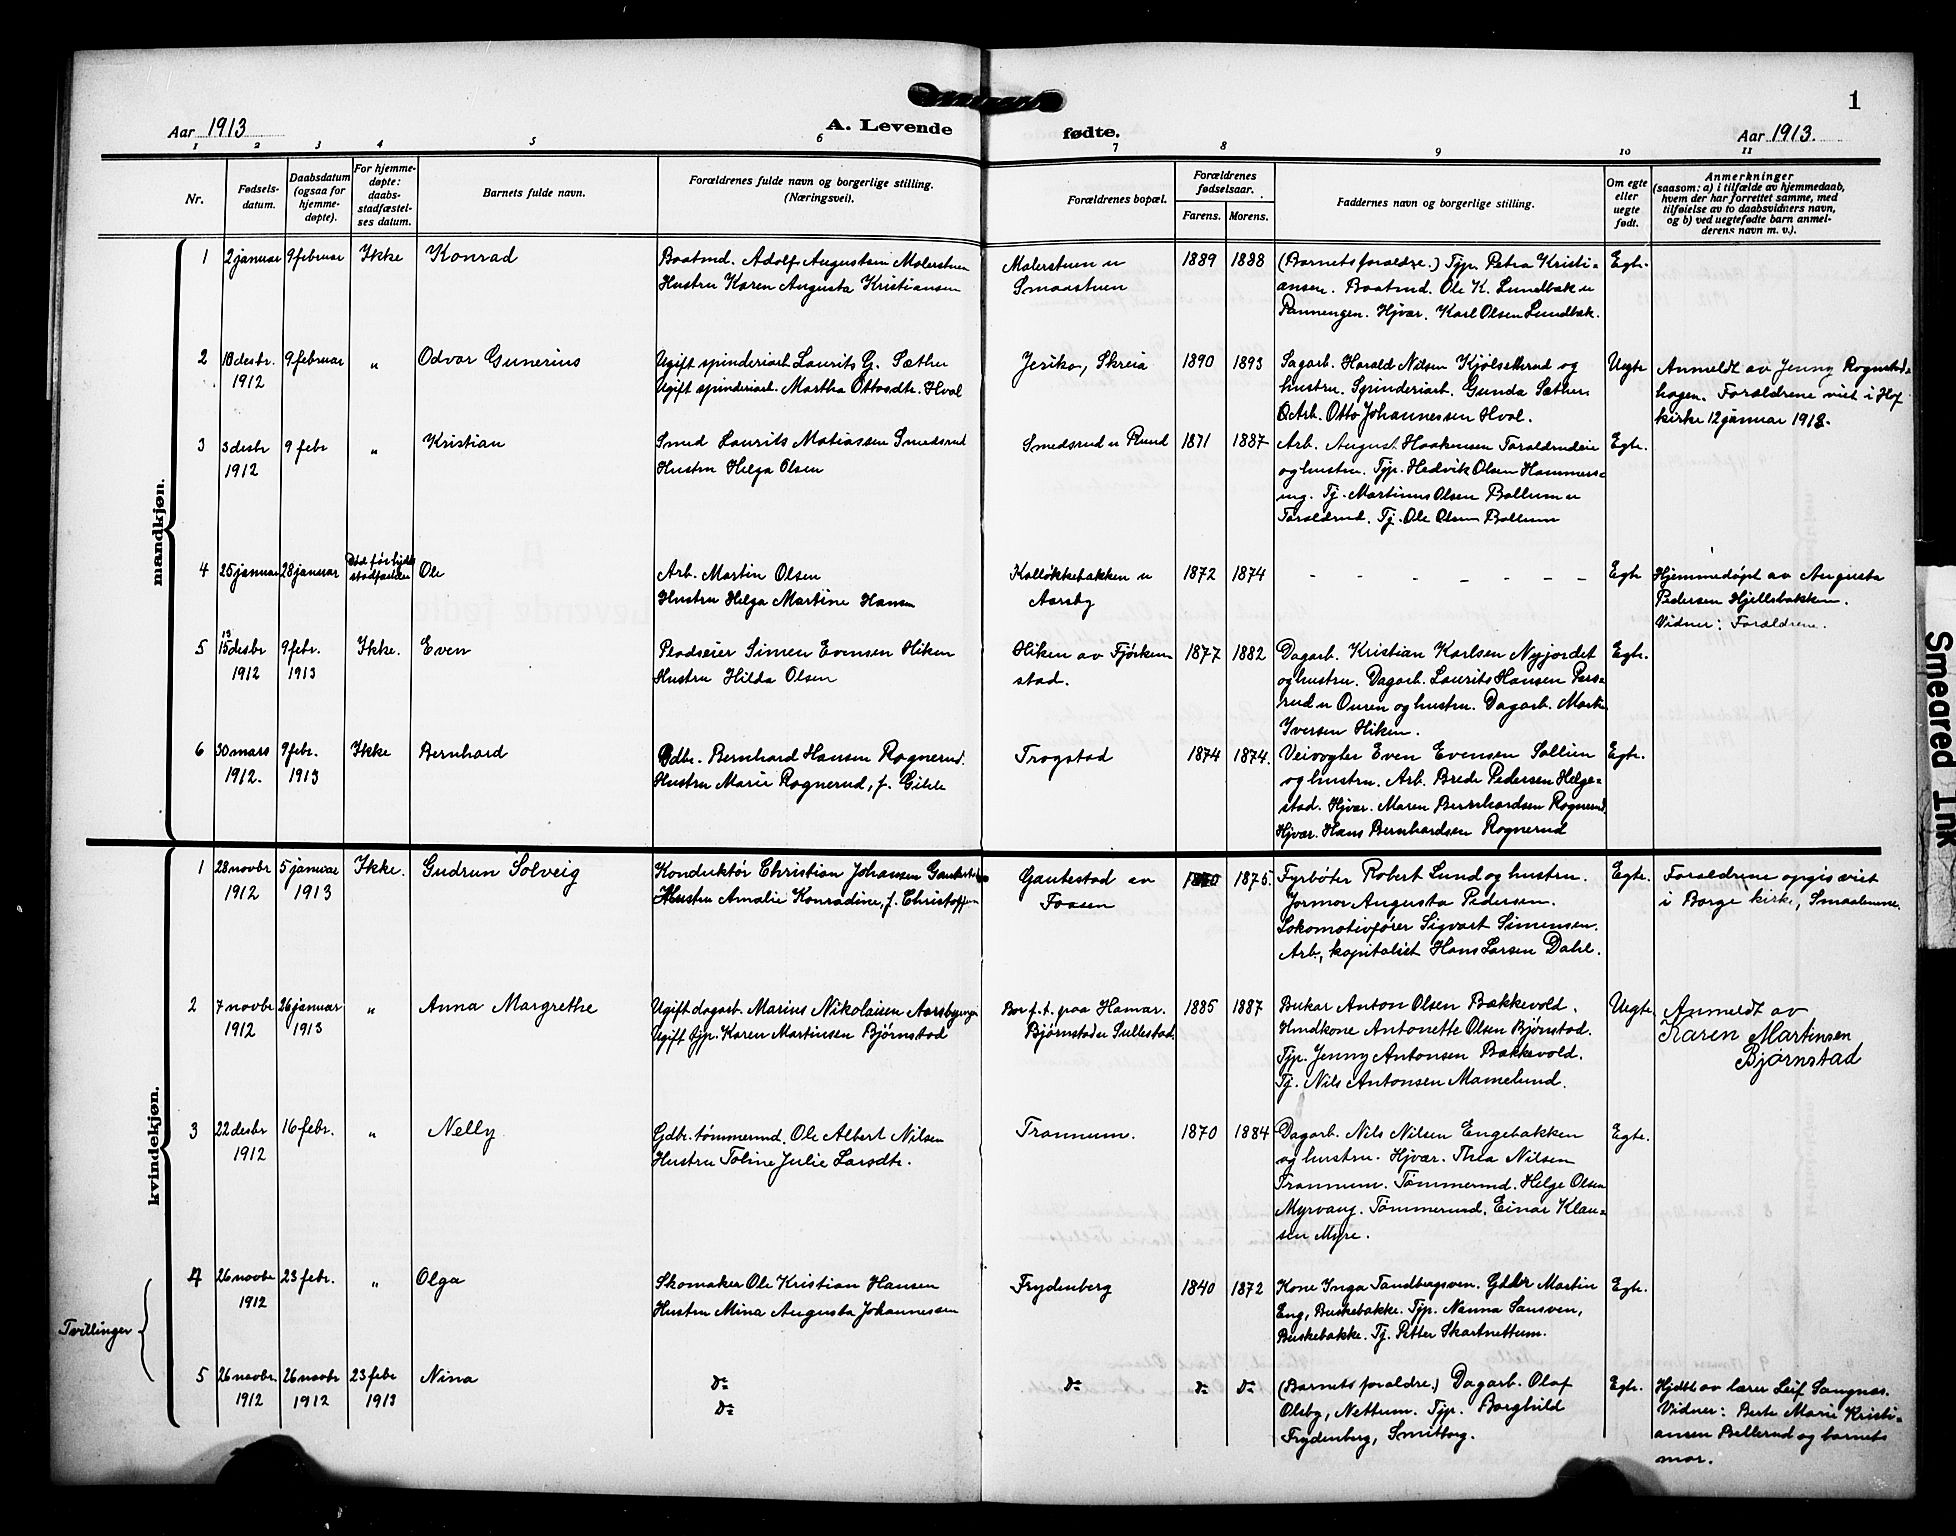 1
Aar 1913
A. Levende fødte.
Aar 1913.
1 2 3 4 5 6 7 8 9 10 11
Nr.
Fødsels-
datum.
Daabsdatum
(ogsaa for
hjemme-
døpte).
For hjemme-
døpte:
daabs-
stadfæstel-
ses datum.
Barnets fulde navn.
Forældrenes fulde navn og borgerlige stilling.
(Næringsvei).
Forældrenes bopæl.
Forældrenes
fødselsaar.
Farens. Morens.
Faddernes navn og borgerlige stilling.
Om egte
eller
uegte
født.
Anmerkninger
(saasom: a) i tilfælde av hjemmedaab,
hvem der har forrettet samme, med
tilføielse av to daabsvidners navn,
og b) ved uegtefødte barn anmel-
derens navn m. v.).
mandkjøn.
1 2 januar 9 februar Ikke Konrad
Baatmd. Adolf Augustsen Malerstuen
Hustru Karen Augusta Kristiansen
Malerstuen u
Smaastuen
1889 1888
(Barnets foraldre.) Tjp. Petra Kristi-
ansen. Baatmd. Ole K. Lundbak u
Panningen. Hjvær. Karl Olsen Lundbak.
Egte.
2 18 desbr. 9 februar " Odvar Gunerius
1912
Ugift spinderiarb. Laurits G. Sæther
Ugift spinderiarb. Martha Ottosdtr. Hval
Jeriko, Skreia
1890 1893
Sagarb. Harald Nilsen Kjølsethrud og
hustru. Spinderiarb. Gunda Sæther
Arb. Otto Johannessen Hval.
Uegte
Anmeldt av Jenny Rognstad-
hagen. Foraldrene viet i Hof
kirke 12 januar 1913.
3 3 desbr 9 febr " Kristian
1912
Smed Laurits Matiassen Smedsrud
Hustru Helga Olsen
Smedsrud u Rud
1871 1887
Arb. August Haakensen Taraldrudeie
og hustru. Tjp. Hedvik Olsen Hammers-
eng. Tj. Martinus Olsen Ballum u
Taraldrud. Tj. Ole Olsen Ballum
Egte.
4 25 januar 28 januar Død før stadfæstelse Ole
Arb. Martin Olsen
Hustru Helga Martine Hansen
Kalløkkebakken u
Aarsby
1872 1874
- - - - - - -
Egte
Hjemmedøpt av Augusta
Pedersen Hjellsbakken.
Vidner: Foraldrene.
13
5 15 desbr 9 febr. Ikke. Even
1912 1913
Pladseier Simen Evensen Hiken
Hustru Hilda Olsen
Hiken av Fjørken-
stad.
1877 1882
Dagarb. Kristian Karlsen Nyjordet
og hustru. Dagarb. Laurits Hansen Pers-
rud u Ouren og hustru. Dagarb. Marte
Iversen Hiken.
Egte.
6 30 mars 9 febr. Ikke Bernhard
1912. 1913
Gdbr. Bernhard Hansen Rognerud.
Hustru Marie Rognerud, f. Gihle
Trogstad
1874 1874.
Veivogter Even Evensen Sollien
og hustru. Arb. Brede Pedersen Helge-
stad. Hjvær. Maren Bernhardsen Rognerud.
Hjvær. Hans Bernhardsen Rognerud
Egte.
kvindekjøn.
1 28 novbr 5 januar Ikke. Gudrun Solveig
1912 1913
Konduktør Christian Johansen Gautestad
Hustru Amalie Konradine, f. Christoffersen
Gautestad av
Fossen
1875.
Fyrbøter Robert Lund og hustru.
Jormor Augusta Pedersen.
Lokomotivfører Sigvart Simensen.
Arb., kapitalist Hans Larsen Dahl.
Egte.
Foraldrene opgis viet
i Borge kirke, Smaalenene.
2 7 novbr 26 januar " Anna Margrethe
1912 1913
Ugift dagarb. Marius Nikolaisen Aarsbyengen
Ugift tjp. Karen Martinsen Bjørnstad
Bor f. t. paa Hamar.
Bjørnstad u Sullestad.
1885 1887
Bukar Anton Olsen Bakkevold.
Kmdkone Antonette Olsen Bjørnstad.
Tjp. Jenny Antonsen Bakkevold.
Tj. Nils Antonsen Mamelund.
Uegte.
Anmeldt av
Karen Martinsen
Bjørnstad
3 22 desbr 16 febr. " Nelly
1912
Gdbr. tømmermd. Ole Albert Nilsen
Hustru Toline Julie Larsdtr.
Trannum.
1870 1884
Dagarb. Nils Nilsen Engebakken
og hustru. Hjvær. Thea Nilsen
Trannum. Tømmermd. Helge Olsen
Myrvang. Tømmermd. Einar Klau-
sen Myre.
Egte.
Tvillinger
4 26 novbr 23 febr. " Olga
1912
Skomaker Ole Kristian Hansen
Hustru Mina Augusta Johannessen
Frydenberg
1840 1872
Kone Inga Sandbergsven. Gdbr Martin
Eng, Buskebakke. Tjp. Nanna Sansven,
Buskebakke. Tj. Petter Skartnettum.
Egte.
5 26 novbr. 26 novbr 23 febr Nina
1912 1912 1913
do
do
do do do
(Barnets foraldre.) Dagarb. Olaf
Olsby, Nettum. Tjp. Borghild
Frydenberg, Smitborg.
Egte.
Hjdbt av lærer Leif Sangnæs.
Vidner: Berte Marie Kristi-
ansen Bellerud og barnets
mor.
Smeared ink